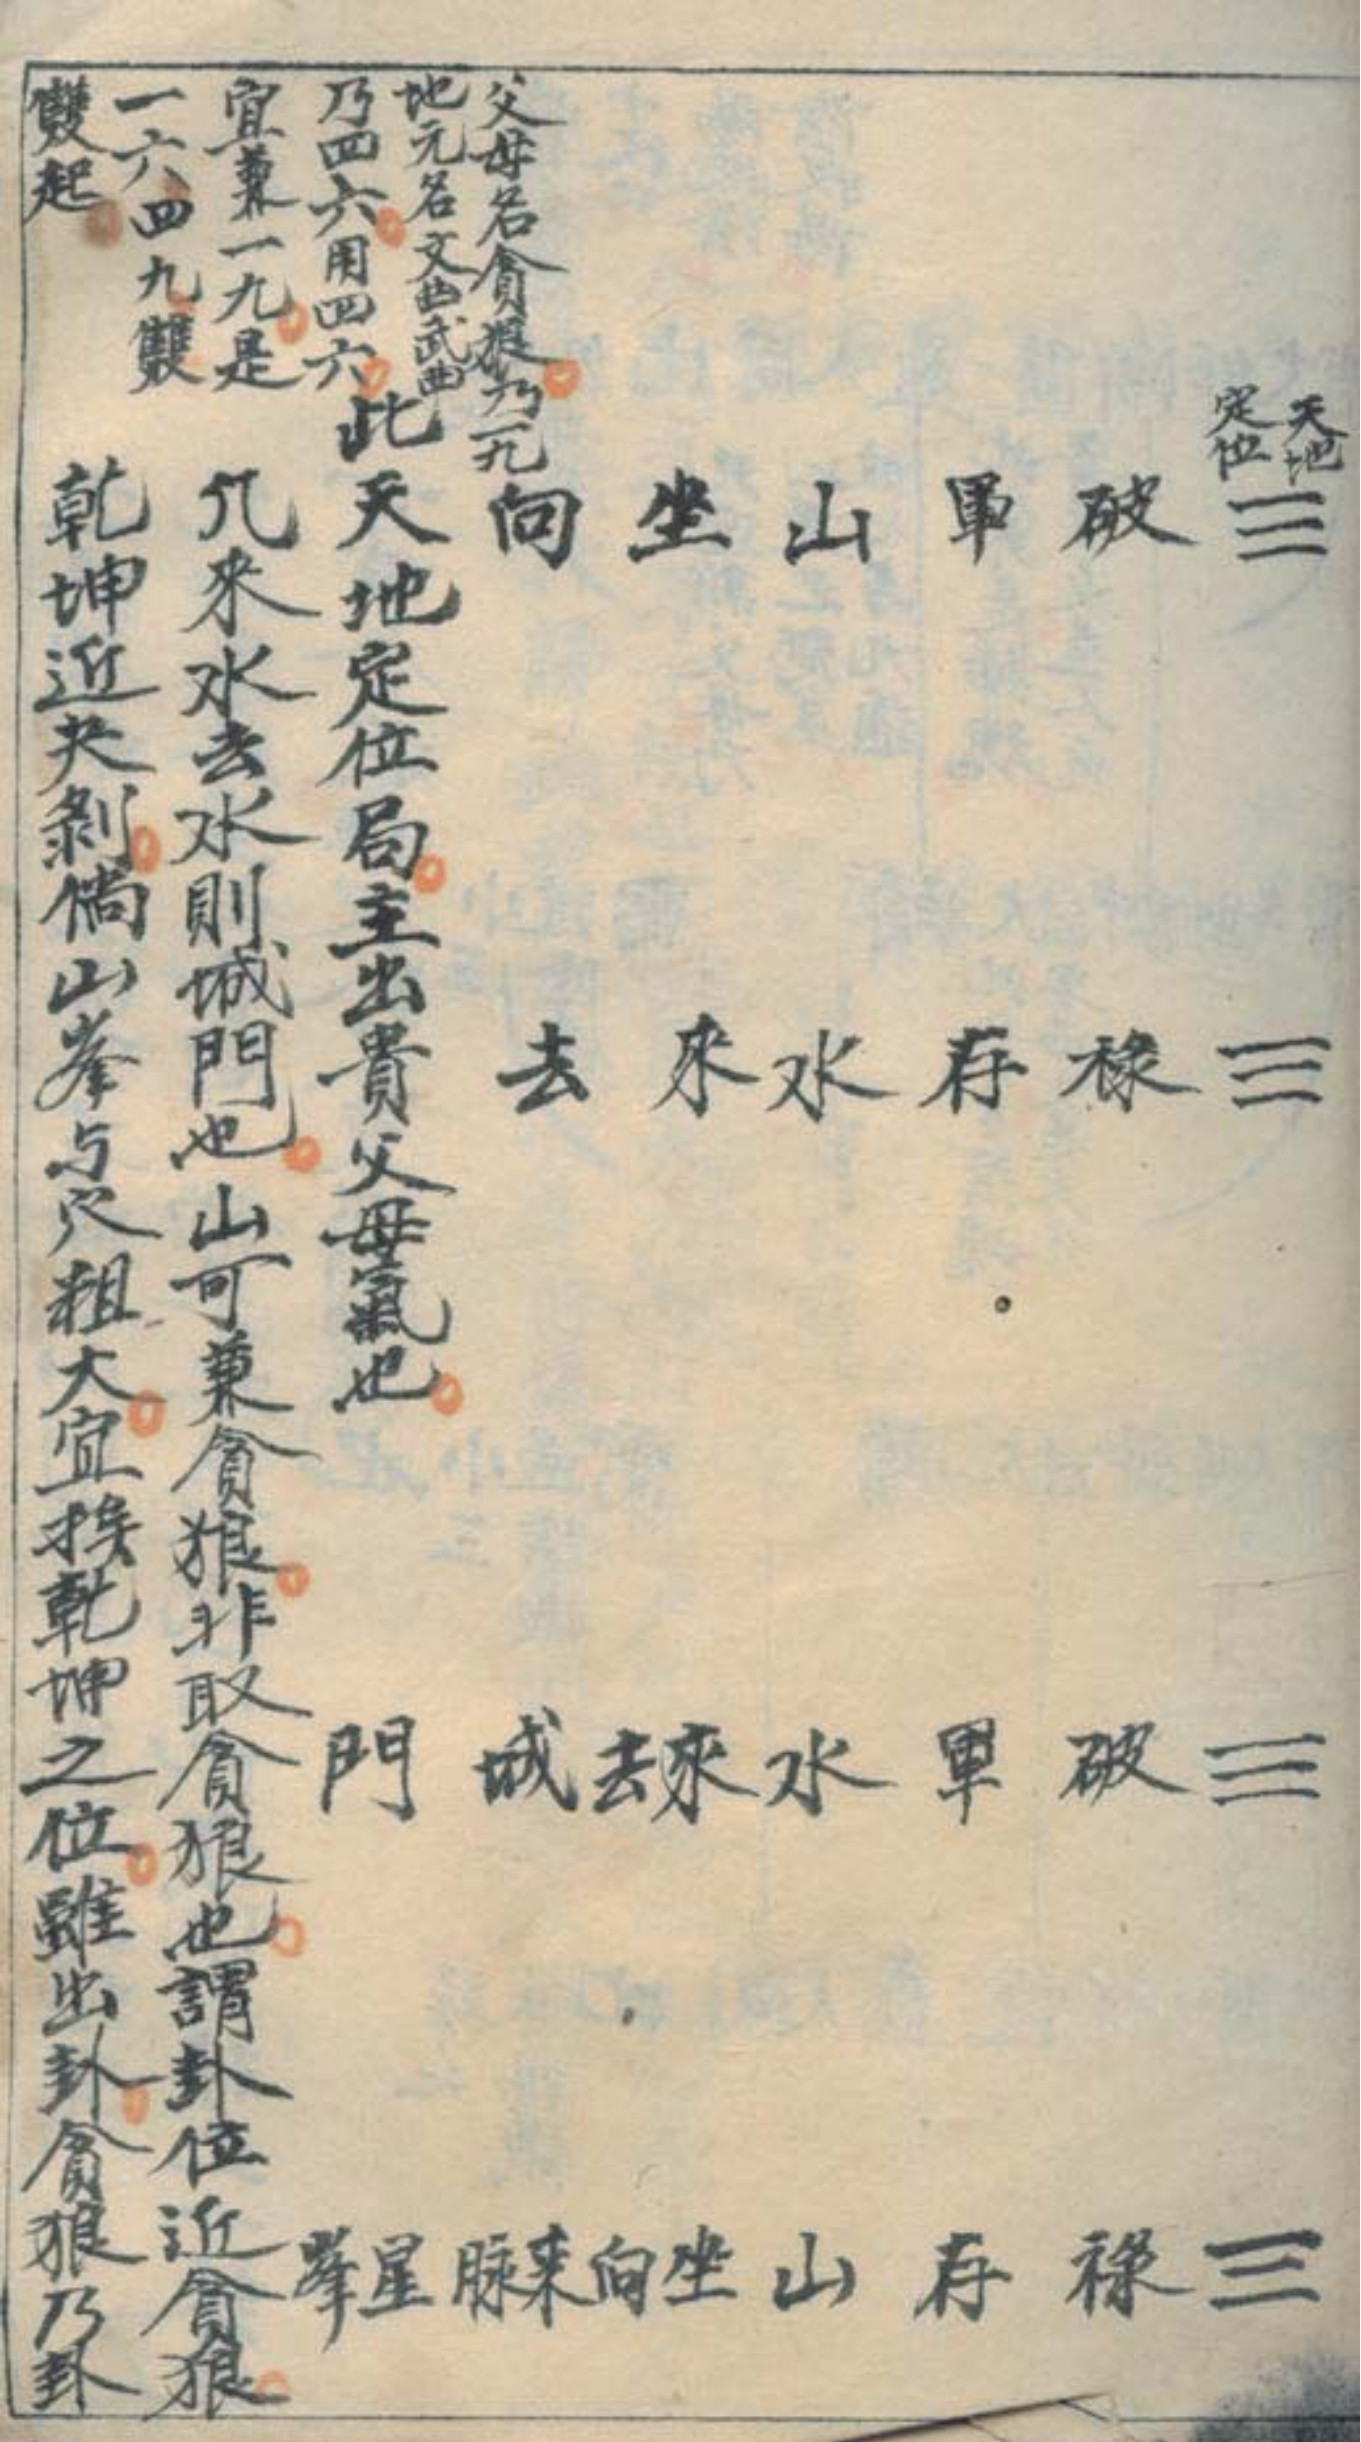 天地
定位
☰破軍山坐向
☰祿存水來去
☰破軍水來去城門
☰祿存山坐向來脉星峯
父母名貪狼乃一九
地元名文曲武曲
乃四六用四六
宜兼一九是
一六四九雙
雙起
此天地定位局主出貴父母氣也
凡來水去水則城門也山可兼貪狼非取貪狼也謂卦位近貪狼
乾坤近夬剝倘山峯与穴粗大宜挨乾坤之位雖出卦貪狼乃卦